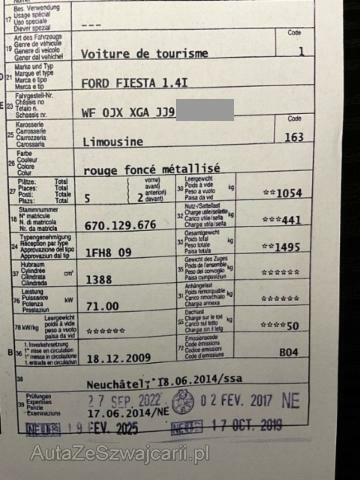 Bes. Verwendung
Usage spécial
Uso speciale
Diever spezial
---
19 Art des Fahrzeugs
Genre de véhicule
Genere di veicolo
Gener dal vehichel
Voiture de tourisme
Code
1
21 Marke und Typ
Marque et type
Marca e tipo
Marca e tip
FORD FIESTA 1.4I
23 Fahrgestell-Nr.
Châssis no
Telaio n.
Schassis nr.
WF 0JX XGA JJ9
25 Karosserie
Carrosserie
Carrozzeria
Carossaria
Limousine
Code
163
26 Farbe
Couleur
Colore
Colur
rouge foncé métallisé
27 Plätze: Total
Places: Total
Posti: Totale
Plazs: Total
5
vorne)
avant)
davanti)
2
Leergewicht
Poids à vide
Peso a vuoto
Paisa da vid
kg
☆☆1054
18 Stammnummer
N° matricule
N. di matricola
Nr. da matricla
670.129.676
Nutz-/Sattellast
kg
☆☆☆441
24 Typengenehmigung
Réception par type
Approvazione del tipo
Approvaziun dal tip
1FH8 09
33 Gesamtgewicht
Poids total
Peso totale
Paisa totala
kg
☆☆1495
37 Hubraum
Cylindrée
Cilindrata
Cilindrada
cm³
1388
Gewicht des Zuges
Poids de l'ensemble
kg
76 Leistung
Puissance
Potenza
Prestaziun
kW
71.00
31 Anhängelast
Poids remorquable
kg
78 kW/kg
Leergewicht
poids à vide
peso a vuoto
paisa da vid
☆☆☆☆☆☆
55 Dachlast
Charge sur le toit
kg
☆☆☆☆50
B 36 1. Inverkehrsetzung
1re mise en circulation
1. messa in circolazione
1. entrada en circulaziun
18.12.2009
72 Emissionscode
Code émissions
Codice emissioni
Code d'emissiun
B04
38
Neuchâtel, 18.06.2014/ssa
39 Prüfungen
Expertises
Perizie
Examinaziuns
27 SEP. 2022
02 FEV. 2017 NE
17.06.2014/NE
19 FEV. 2025
17 OCT. 2019
AutaZeSzwajcarii.pl